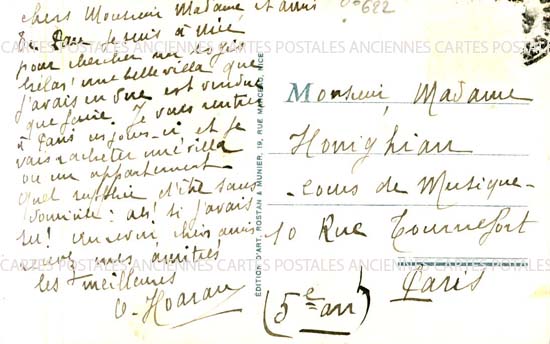 chers Monsieur Madame et amis
682
Je suis à Nice
pour chercher un logis
hélas! une belle villa que
j'avais en vue est vendue
que faire. Je vais rentrer
à Paris ces jours-ci et je
vais acheter une villa
ou un appartement
quel supplice d'être sans
domicile! ah! si j'avais
su! au revoir chers amis
mes amitiés
les meilleures
Hoarau
ÉDITION D'ART, ROSTAN & MUNIER, 19, RUE MARCEAU, NICE
Monsieur, Madame
Honighian
cours de Musique
10 Rue Tournefort
Paris
(5e arr)
CARTES POSTALES ANCIENNES CARTES POSTALES ANCIENNES CARTES POSTALES